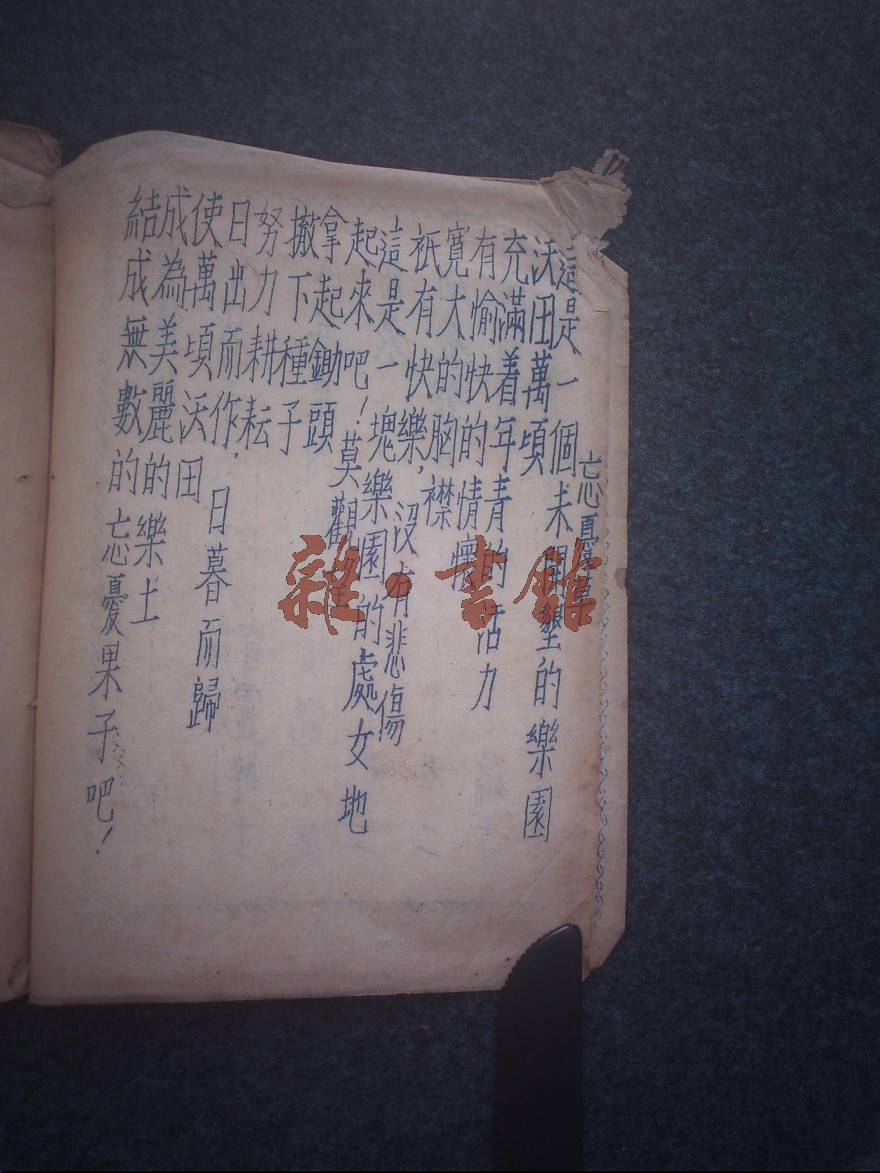 忘憂草
這是一個未開墾的樂園
沃田萬頃
充滿着年青的活力
有愉快的情懷
寬大的胸襟
衹有快樂，沒有悲傷
這是一塊樂園的處女地
起來吧！莫觀望
拿起鋤頭
撒下種子
努力耕耘
日出而作．日暮而歸
使萬頃沃田
成為美麗的樂土
結成無數的忘憂果子吧！
雜·書館